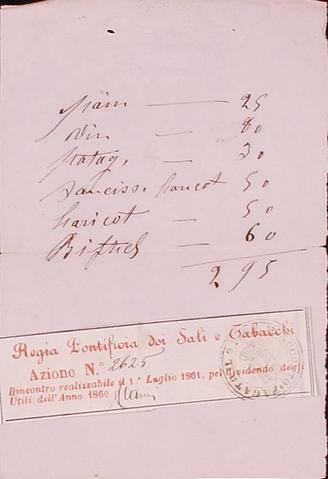 Pain — 25
Vin — 80
Potag. — 30
Saucisse haricot 50
haricot — 50
Biftek — 60
295
Regia Pontificia dei Sali e Tabacchi
Azione N.° 2625
Rincontro realizzabile il 1.° Luglio 1861, pel dividendo degli
Utili dell'Anno 1860